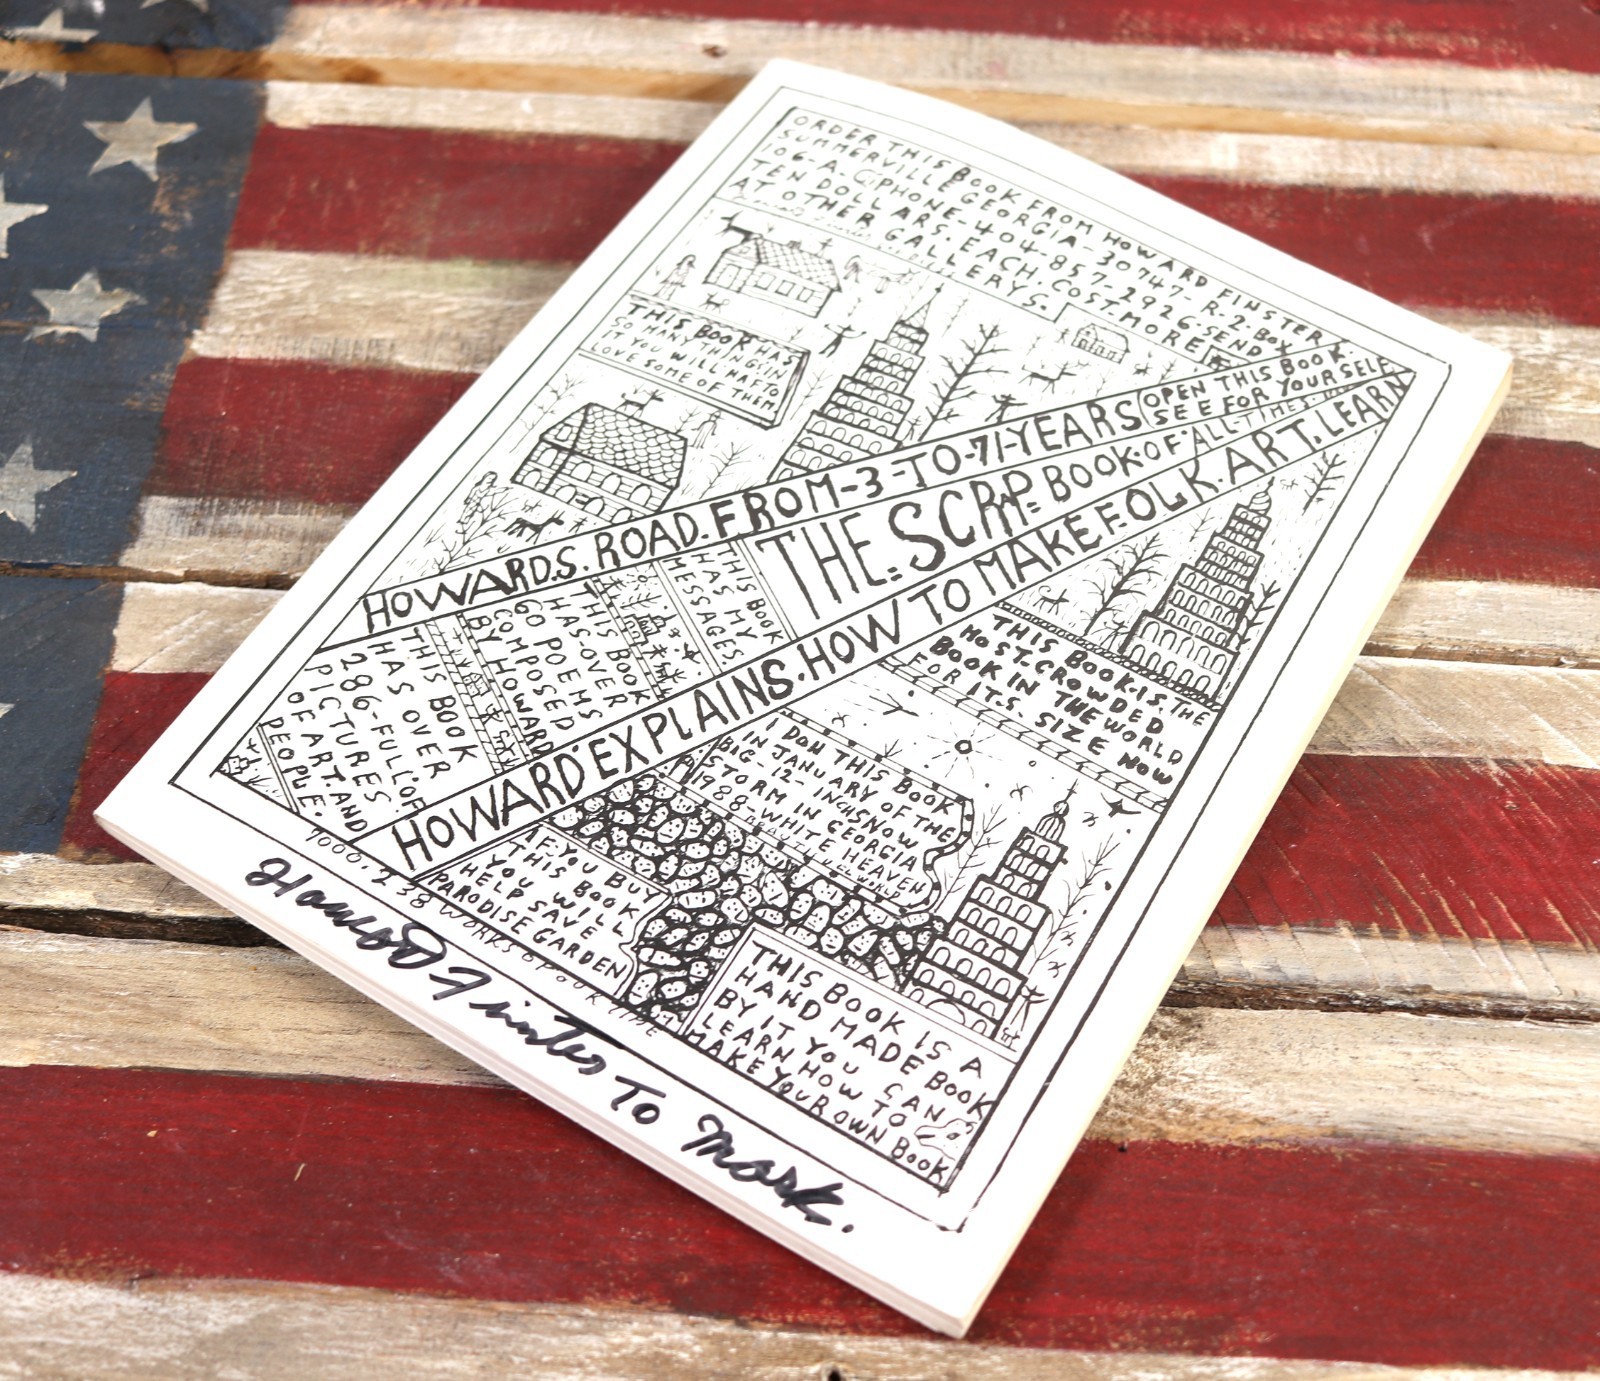 ORDER THIS BOOK FROM HOWARD FINSTER
SUMMERVILLE GEORGIA-30747-R.2.BOX
106-A.G PHONE-404-857-2926.SEND
TEN DOLLARS.EACH.COST.MORE
AT OTHER GALLERYS.
THIS BOOK HAS
SO MANY THINGS IN
IT YOU WILL HAFTO
LOVE SOME OF THEM
HOWARD.S. ROAD. FROM-3-TO-71-YEARS
OPEN THIS BOOK.
SEE FOR YOURSELF
THE.SCRAP BOOK.OF ALL-TIMES.
HOWARD EXPLAINS.HOW TO MAKE FOLK.ART.LEARN
THIS BOOK
HAS MY
MESSAGES.
THIS BOOK
HAS-OVER
60 POEMS
COMPOSED
BY HOWARD
THIS BOOK
HAS OVER
286-FULL.OF
PICTURES
OF ART.AND
PEOPLE.
THIS BOOK.IS.THE
MOST.CROWDED
BOOK IN THE WORLD
FOR IT.S. SIZE NOW
I DON THIS BOOK
IN JANUARY OF THE
BIG-12-INCH SNOW
STORM IN GEORGIA
1988-WHITE HEAVEN
IF YOU BUY
THIS BOOK
YOU WILL
HELP SAVE
PARODISE GARDEN
THIS BOOK IS A
HAND MADE BOOK
BY IT YOU CAN
LEARN HOW TO
MAKE YOUR OWN BOOK
7000.238 WORKS OF OUR TIME
Howard Finster To Mark.